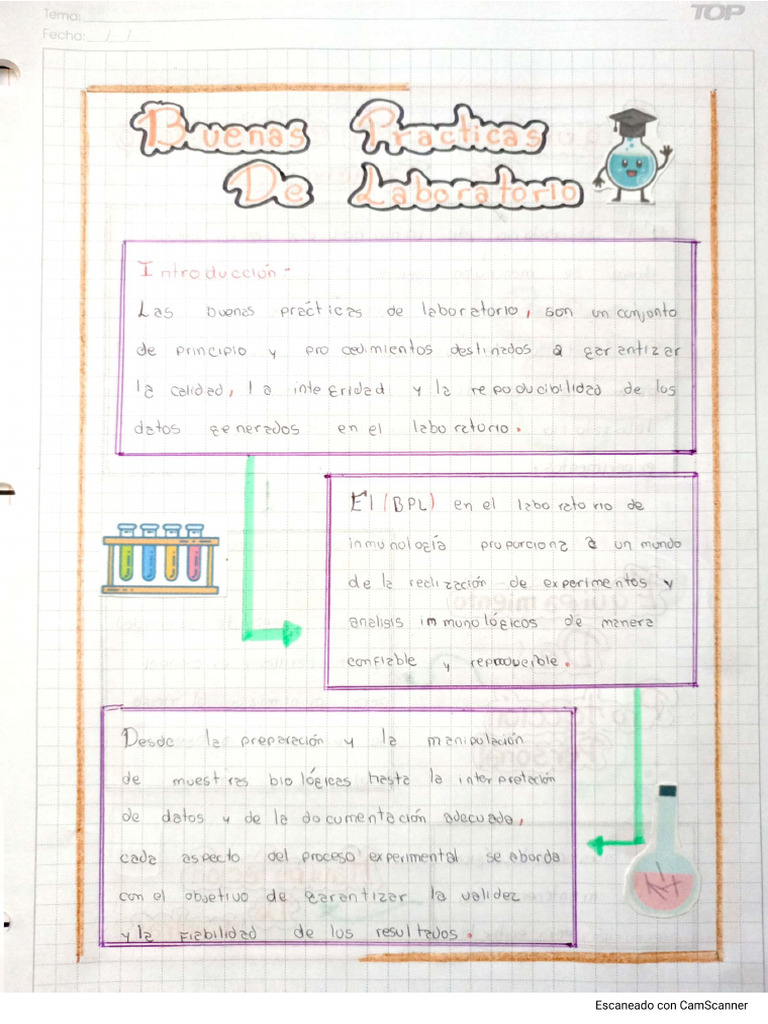 Tema:
TOP
Fecha: / /
Buenas Practicas
De Laboratorio
Introducción:
Las buenas prácticas de laboratorio, son un conjunto
de principio y procedimientos destinados a garantizar
la calidad, la integridad y la repoducibilidad de los
datos generados en el laboratorio.
El (BPL) en el laboratorio de
inmunología proporciona a un mundo
de la realización de experimentos y
analisis immunológicos de manera
confiable y reproduerible.
Desde la preparación y la manipulación
de muestras biológicas hasta la interpretación
de datos y de la documentación adecuada,
cada aspecto del proceso experimental se aborda
con el objetivo de garantizar la validez
y la fiabilidad de los resultados.
Escaneado con CamScanner